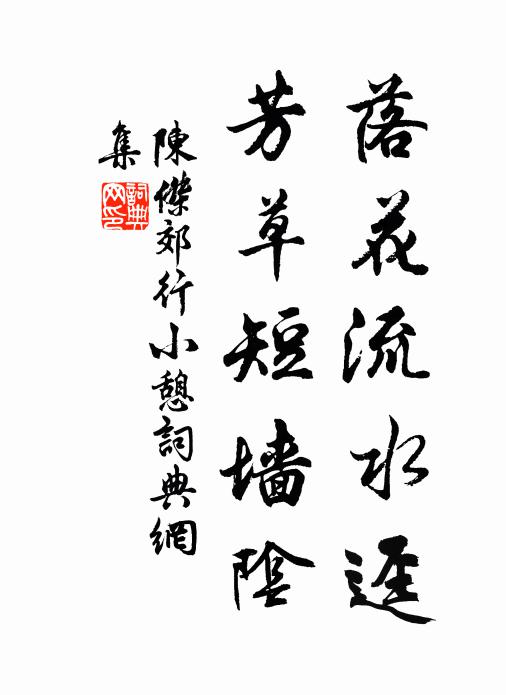 落花流水逕
芳草短墙陰
陳傑郊行小憩詞典網
集
詞典网印